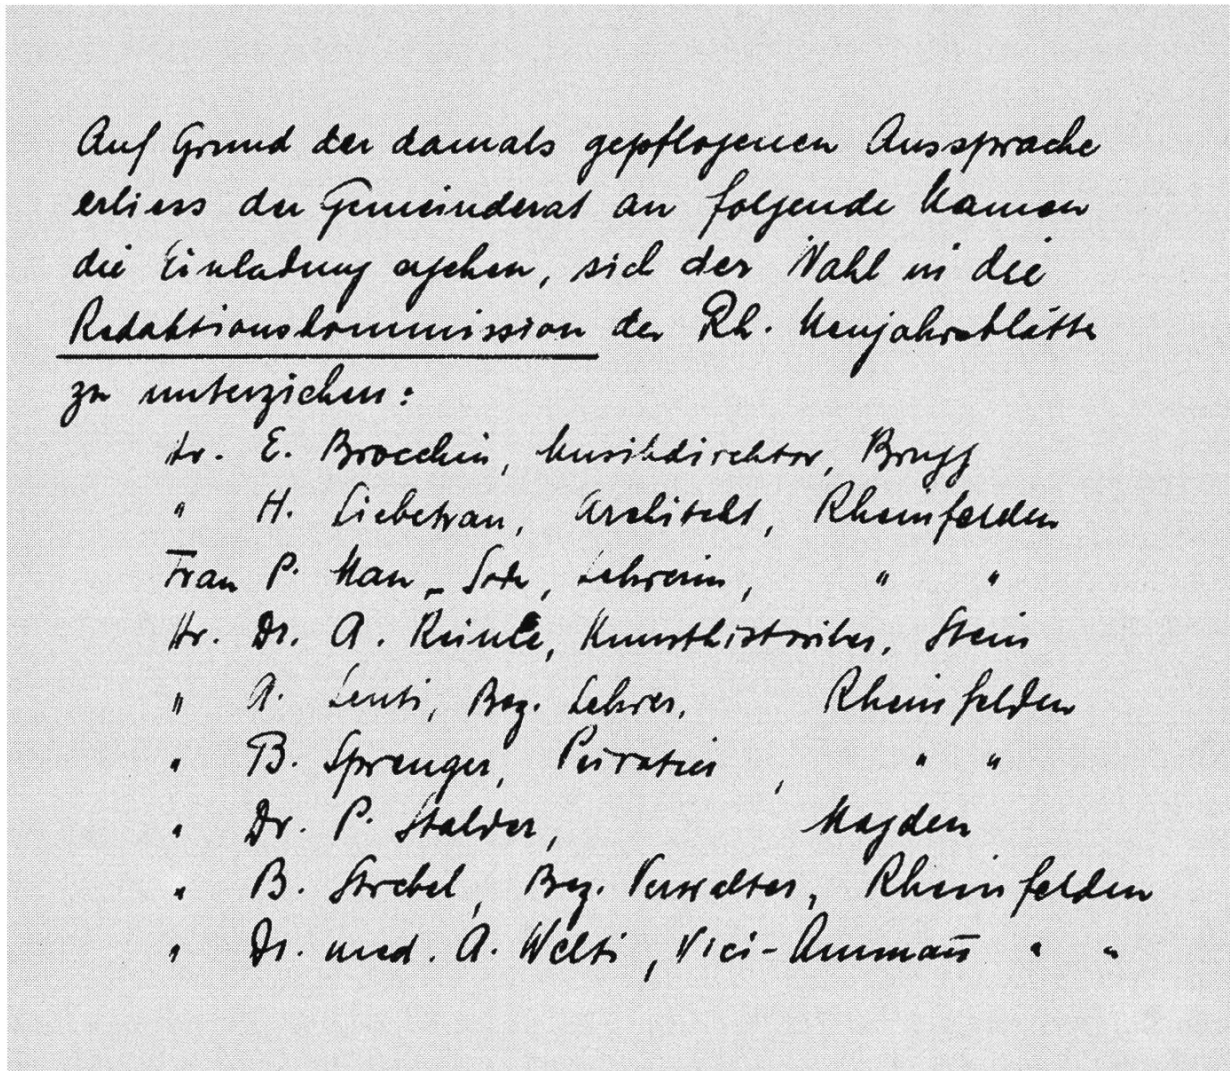 Auf Grund der damals gepflogenen Aussprache
erliess der Gemeinderat an folgende Namen
die Einladung ergehen, sich der Wahl in die
Redaktionskommission der Rh. Neujahrsblätter
zu unterziehen:
Hr. E. Broechin, Musikdirektor, Brugg
" H. Liebetrau, Architekt, Rheinfelden
Frau P. Lehrerin, " "
Hr. Dr. A. Reinle, Kunsthistoriker, Stein
" A. Senti, Bez. Lehrer, Rheinfelden
" B. Sprenger, " "
" Dr. P. Stalder, Magden
" B. Strebel, Bez. Verwalter, Rheinfelden
" Dr. med. A. Welti, Vici-Ammann " "